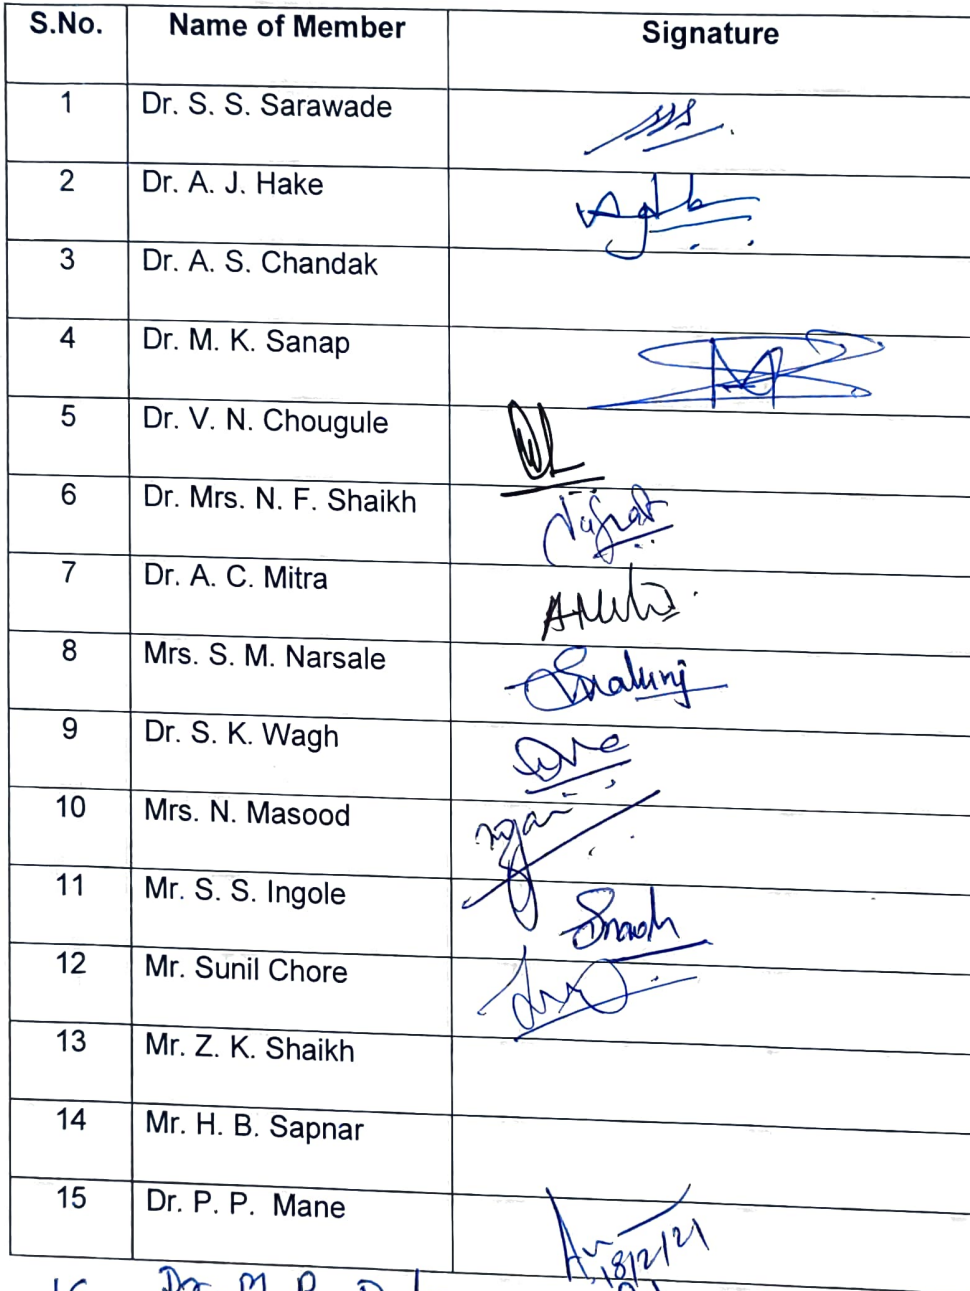 S.No. Name of Member Signature
1 Dr. S. S. Sarawade
2 Dr. A. J. Hake
3 Dr. A. S. Chandak
4 Dr. M. K. Sanap
5 Dr. V. N. Chougule
6 Dr. Mrs. N. F. Shaikh
7 Dr. A. C. Mitra
8 Mrs. S. M. Narsale
9 Dr. S. K. Wagh
10 Mrs. N. Masood
11 Mr. S. S. Ingole
12 Mr. Sunil Chore
13 Mr. Z. K. Shaikh
14 Mr. H. B. Sapnar
15 Dr. P. P. Mane
18/2/21